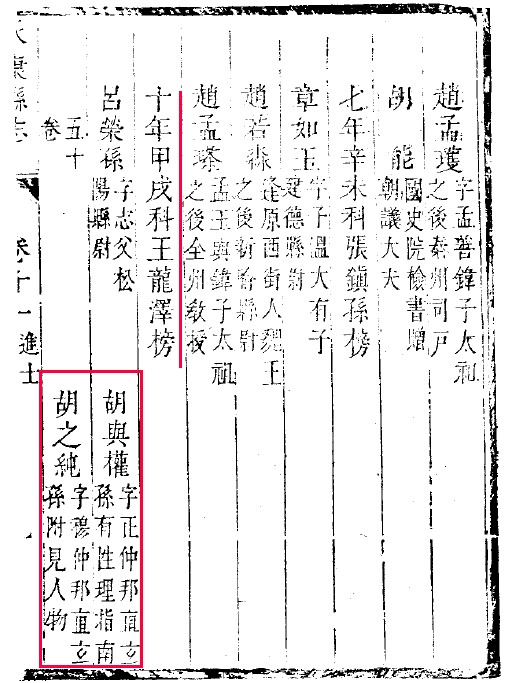 趙孟瓊
字孟善鍏子太祖
之後秦州司戶
胡能
國史院檢書贈
朝議大夫
七年辛未科張鎮孫榜
章如玉
字子溫大有子
建德縣尉
趙若森
逢原西街人魏王
之後新喻縣尉
趙孟
孟玉與鍏子太祖
之後全州教授
十年甲戌科王龍澤榜
呂榮孫
字志父松
陽縣尉
胡與權
字正仲邦直玄
孫有性理指南
五十
卷
胡之純
字穆仲邦直玄
孫附見人物
永康縣志 卷十一 進士